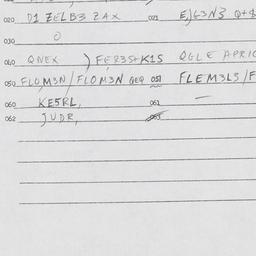 020 D1 ZELB3 2AX 021
030 O
040 QNEX ) FER3S+K1S QGLE APRIC
050 FLOM3N / FLOM3N GEQ 051 FLEM3LS / F
060 KE5RL, 061 —
062 JUDR, 063